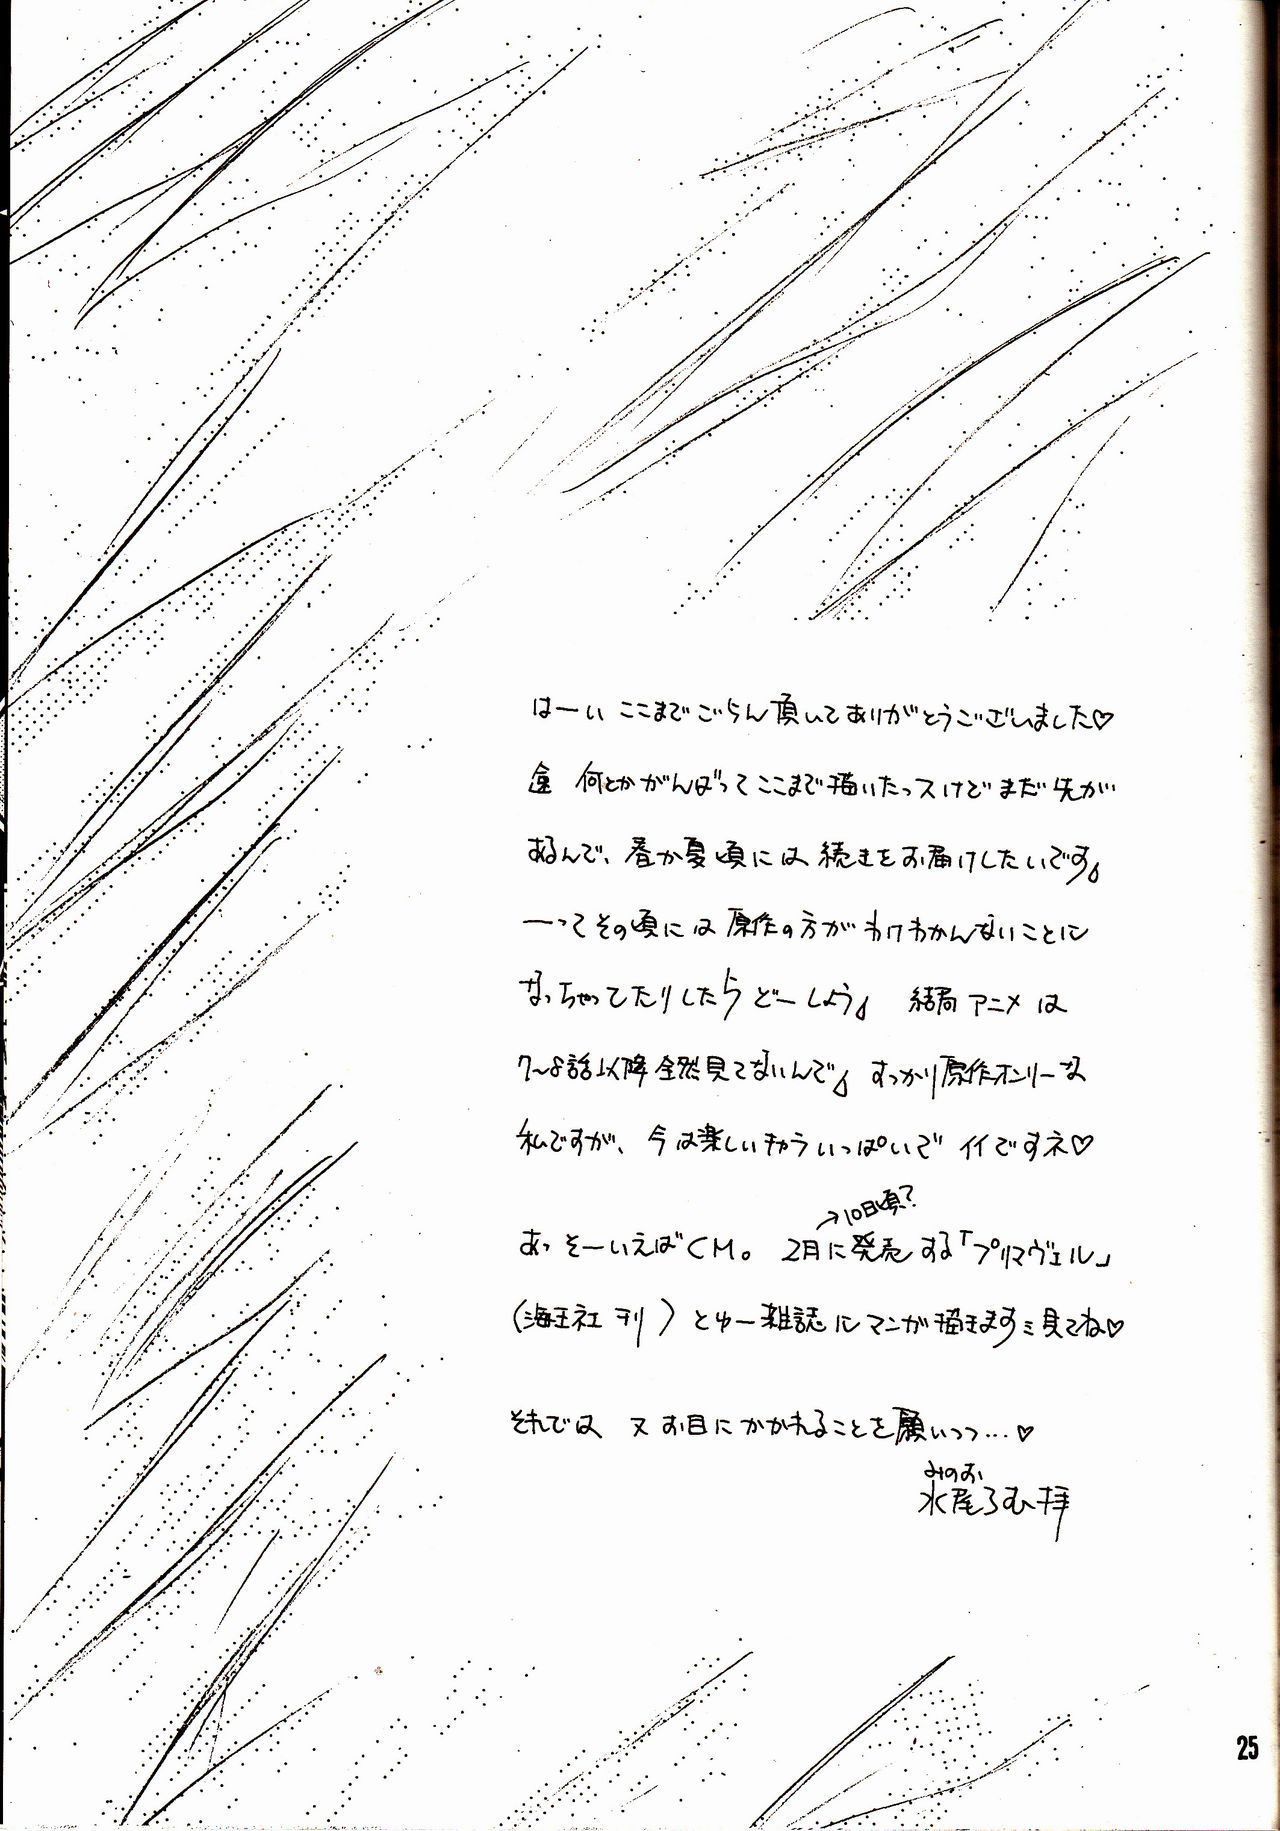 はーい ここまでごらん頂いてありがとうございました♡
何とかがんばってここまで描いたっスけどまだ先が
あるんで、春か夏頃には続きをお届けしたいです。
ーってその頃には原作の方がわけわかんないことに
なっちゃってたりしたらどーしよう。 結局アニメは
7〜8話以降全然見てないんで。すっかり原作オンリーな
私ですが、今は楽しいキャラいっぱいでイイですネ♡
→10日頃?
あっそーいえばCM。 2月に発売する「プリマヴェル」
(海王社刊)とゆー雑誌にマンガ描きます 見てね♡
それでは 又お目にかかれることを願いつつ…♡
みのお
水尾ろむ拝
25